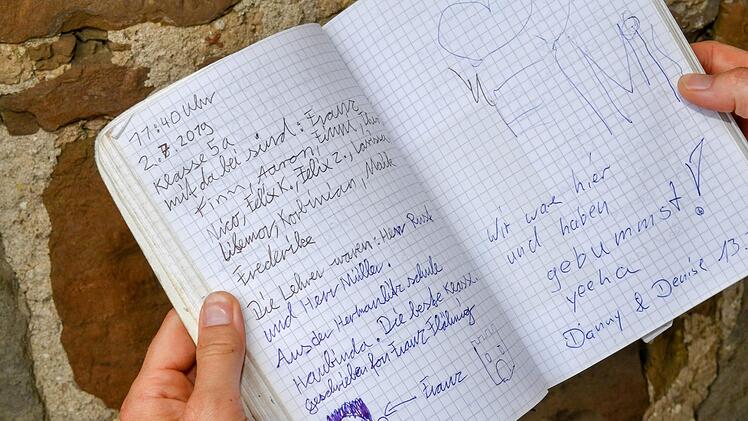 11:40 Uhr
2.7.2019
Klasse 5a
mit dabei sind: Franz
Finn, Aaron, Emil, Theo
Nico, Felix K., Felix Z., Larissa
Korbinian, Maik
Frederike
Die Lehrer waren: Herr Rusk
und Herr Müller.
Aus der Hermann Lietz schule
Haubinda. Die beste Klasse.
Geschrieben fon Franz
Franz
Wir wae hier
und haben
gebummst!
yeeha
Danny & Denise 13.